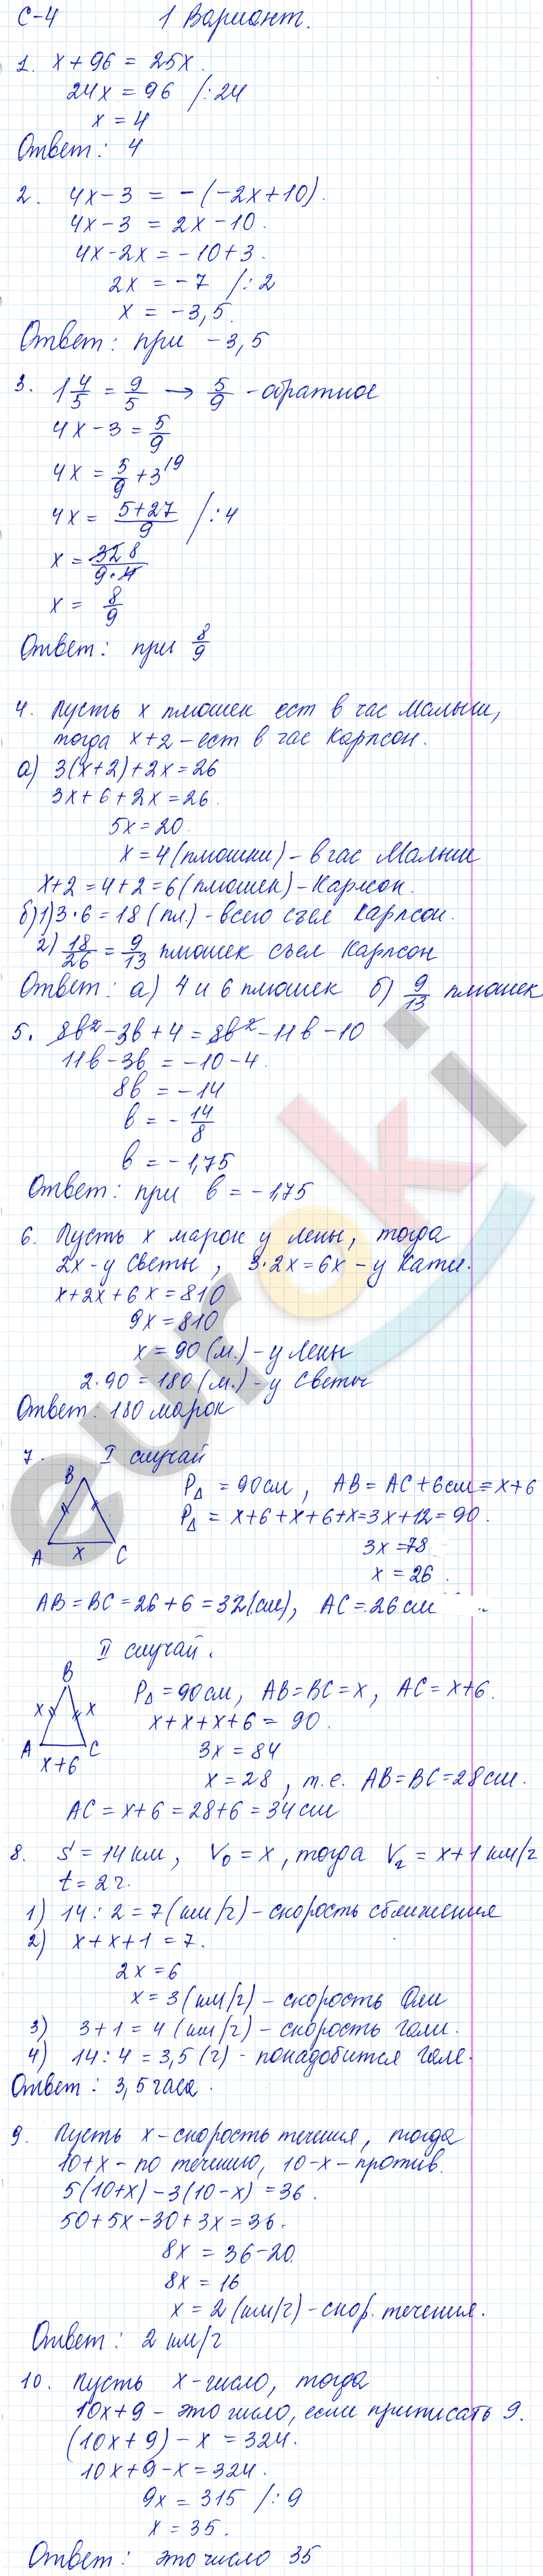 С-4 1 Вариант.
1. x + 96 = 25x.
24x = 96 /:24
x = 4
Ответ: 4
2. 4x - 3 = -(-2x + 10).
4x - 3 = 2x - 10.
4x - 2x = -10 + 3.
2x = -7 /:2
x = -3,5.
Ответ: при -3,5
3. 1 4/5 = 9/5 → 5/9 - обратное
4x - 3 = 5/9
4x = 5/9 + 3 \9
4x = (5+27)/9 /:4
x = 32 8/(9·4)
x = 8/9
Ответ: при 8/9
4. Пусть x плюшек ест в час Малыш,
тогда x+2 - ест в час Карлсон.
а) 3(x+2)+2x=26
3x+6+2x=26.
5x=20.
x=4(плюшки)- в час Малыш
x+2=4+2=6(плюшек)-Карлсон.
б)1)3·6=18(пл)-всего съел Карлсон.
2) 18/26 = 9/13 плюшек съел Карлсон
Ответ: а) 4 и 6 плюшек б) 9/13 плюшек
5. 8b²-3b+4=8b²-11b-10
11b-3b = -10-4.
8b = -14
b = -14/8
b = -1,75
Ответ: при b = -1,75
6. Пусть x марок у Лены, тогда
2x-у Светы, 3·2x=6x-у Кати.
x+2x+6x=810
9x=810
x=90(м.)-у Лены
2·90=180(м.)-у Светы
Ответ: 180 марок
7. I случай
B
P△ = 90см, AB=AC+6см=x+6
P△ = x+6+x+6+x=3x+12=90.
A x C
3x=78
x=26.
AB=BC=26+6=32(см), AC=26см
II случай.
B
P△=90см, AB=BC=x, AC=x+6.
x x
x+x+x+6=90.
A C
3x=84
x+6
x=28, т.е. AB=BC=28см.
AC=x+6=28+6=34см
8. S=14км, V₀=x, тогда V₂=x+1км/ч
t=2ч.
1) 14:2=7(км/ч)-скорость сближения
2) x+x+1=7.
2x=6
x=3(км/ч)-скорость Оли
3) 3+1=4(км/ч)-скорость Гали.
4) 14:4=3,5(ч)-понадобится Гале.
Ответ: 3,5часа.
9. Пусть x-скорость течения, тогда
10+x-по течению, 10-x-против.
5(10+x)-3(10-x)=36.
50+5x-30+3x=36.
8x=36-20.
8x=16
x=2(км/ч)-скор. течения.
Ответ: 2 км/ч
10. Пусть x-число, тогда
10x+9-это число, если приписать 9.
(10x+9)-x=324.
10x+9-x=324.
9x=315 /:9
x=35.
Ответ: это число 35
euroki